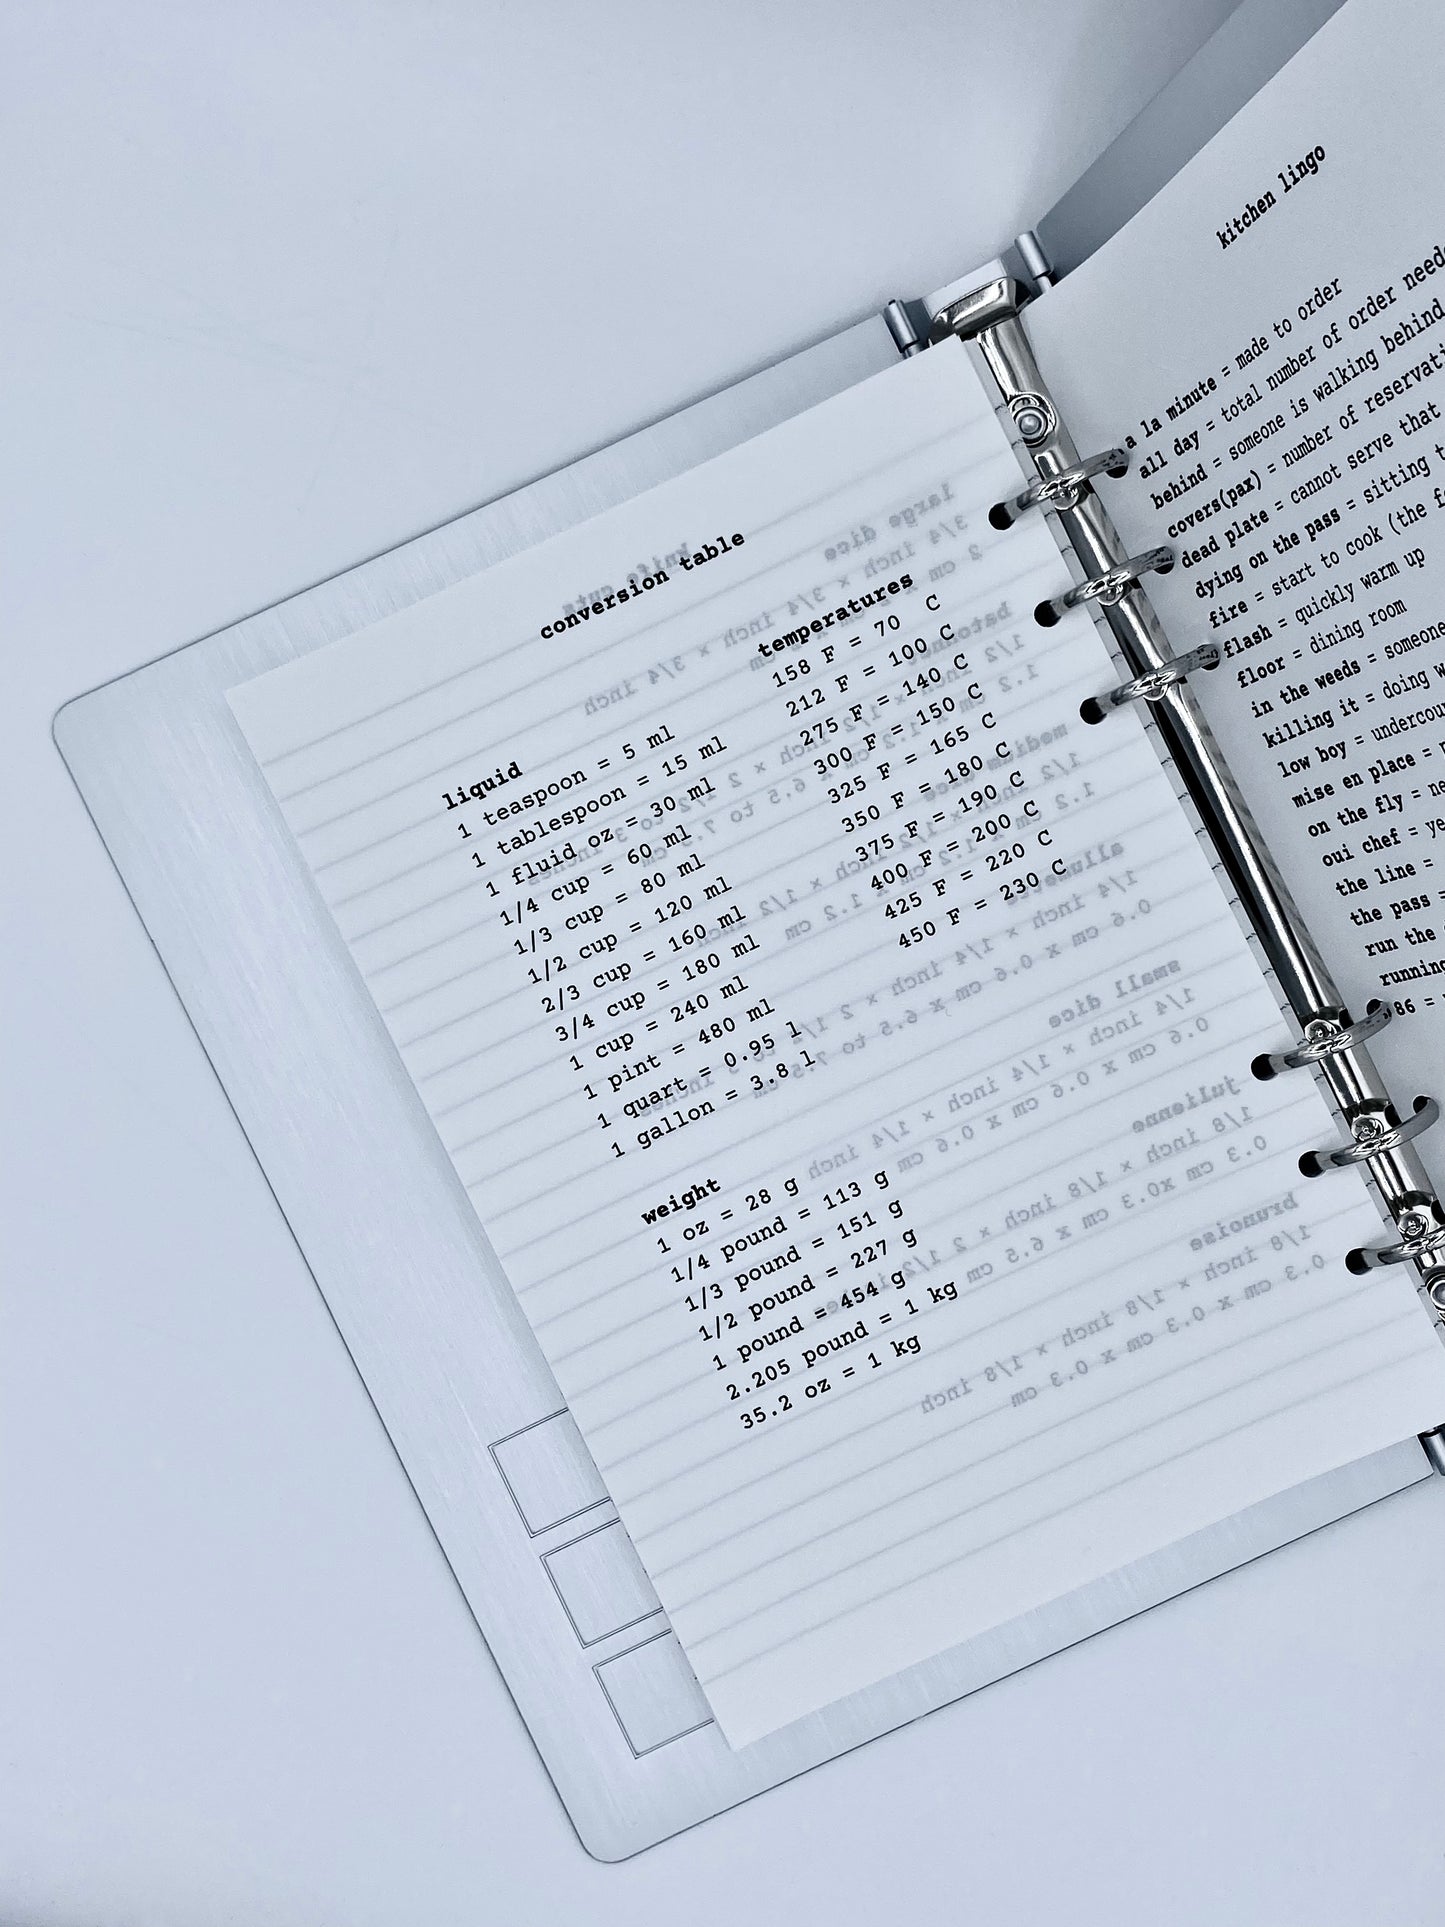 conversion table
liquid
1 teaspoon = 5 ml
1 tablespoon = 15 ml
1 fluid oz = 30 ml
1/4 cup = 60 ml
1/3 cup = 80 ml
1/2 cup = 120 ml
2/3 cup = 160 ml
3/4 cup = 180 ml
1 cup = 240 ml
1 pint = 480 ml
1 quart = 0.95 l
1 gallon = 3.8 l
weight
1 oz = 28 g
1/4 pound = 113 g
1/3 pound = 151 g
1/2 pound = 227 g
1 pound = 454 g
2.205 pound = 1 kg
35.2 oz = 1 kg
temperatures
158 F = 70 C
212 F = 100 C
275 F = 140 C
300 F = 150 C
325 F = 165 C
350 F = 180 C
375 F = 190 C
400 F = 200 C
425 F = 220 C
450 F = 230 C
kitchen lingo
a la minute = made to order
all day = total number of order
behind = someone is walking behind
covers(pax) = number of
dead plate = cannot serve that
dying on the pass = sitting
fire = start to cook (the
flash = quickly warm up
floor = dining room
in the weeds = someone
killing it = doing
low boy =
mise en place =
on the fly =
oui chef =
the line =
the pass =
run the
running
86 =